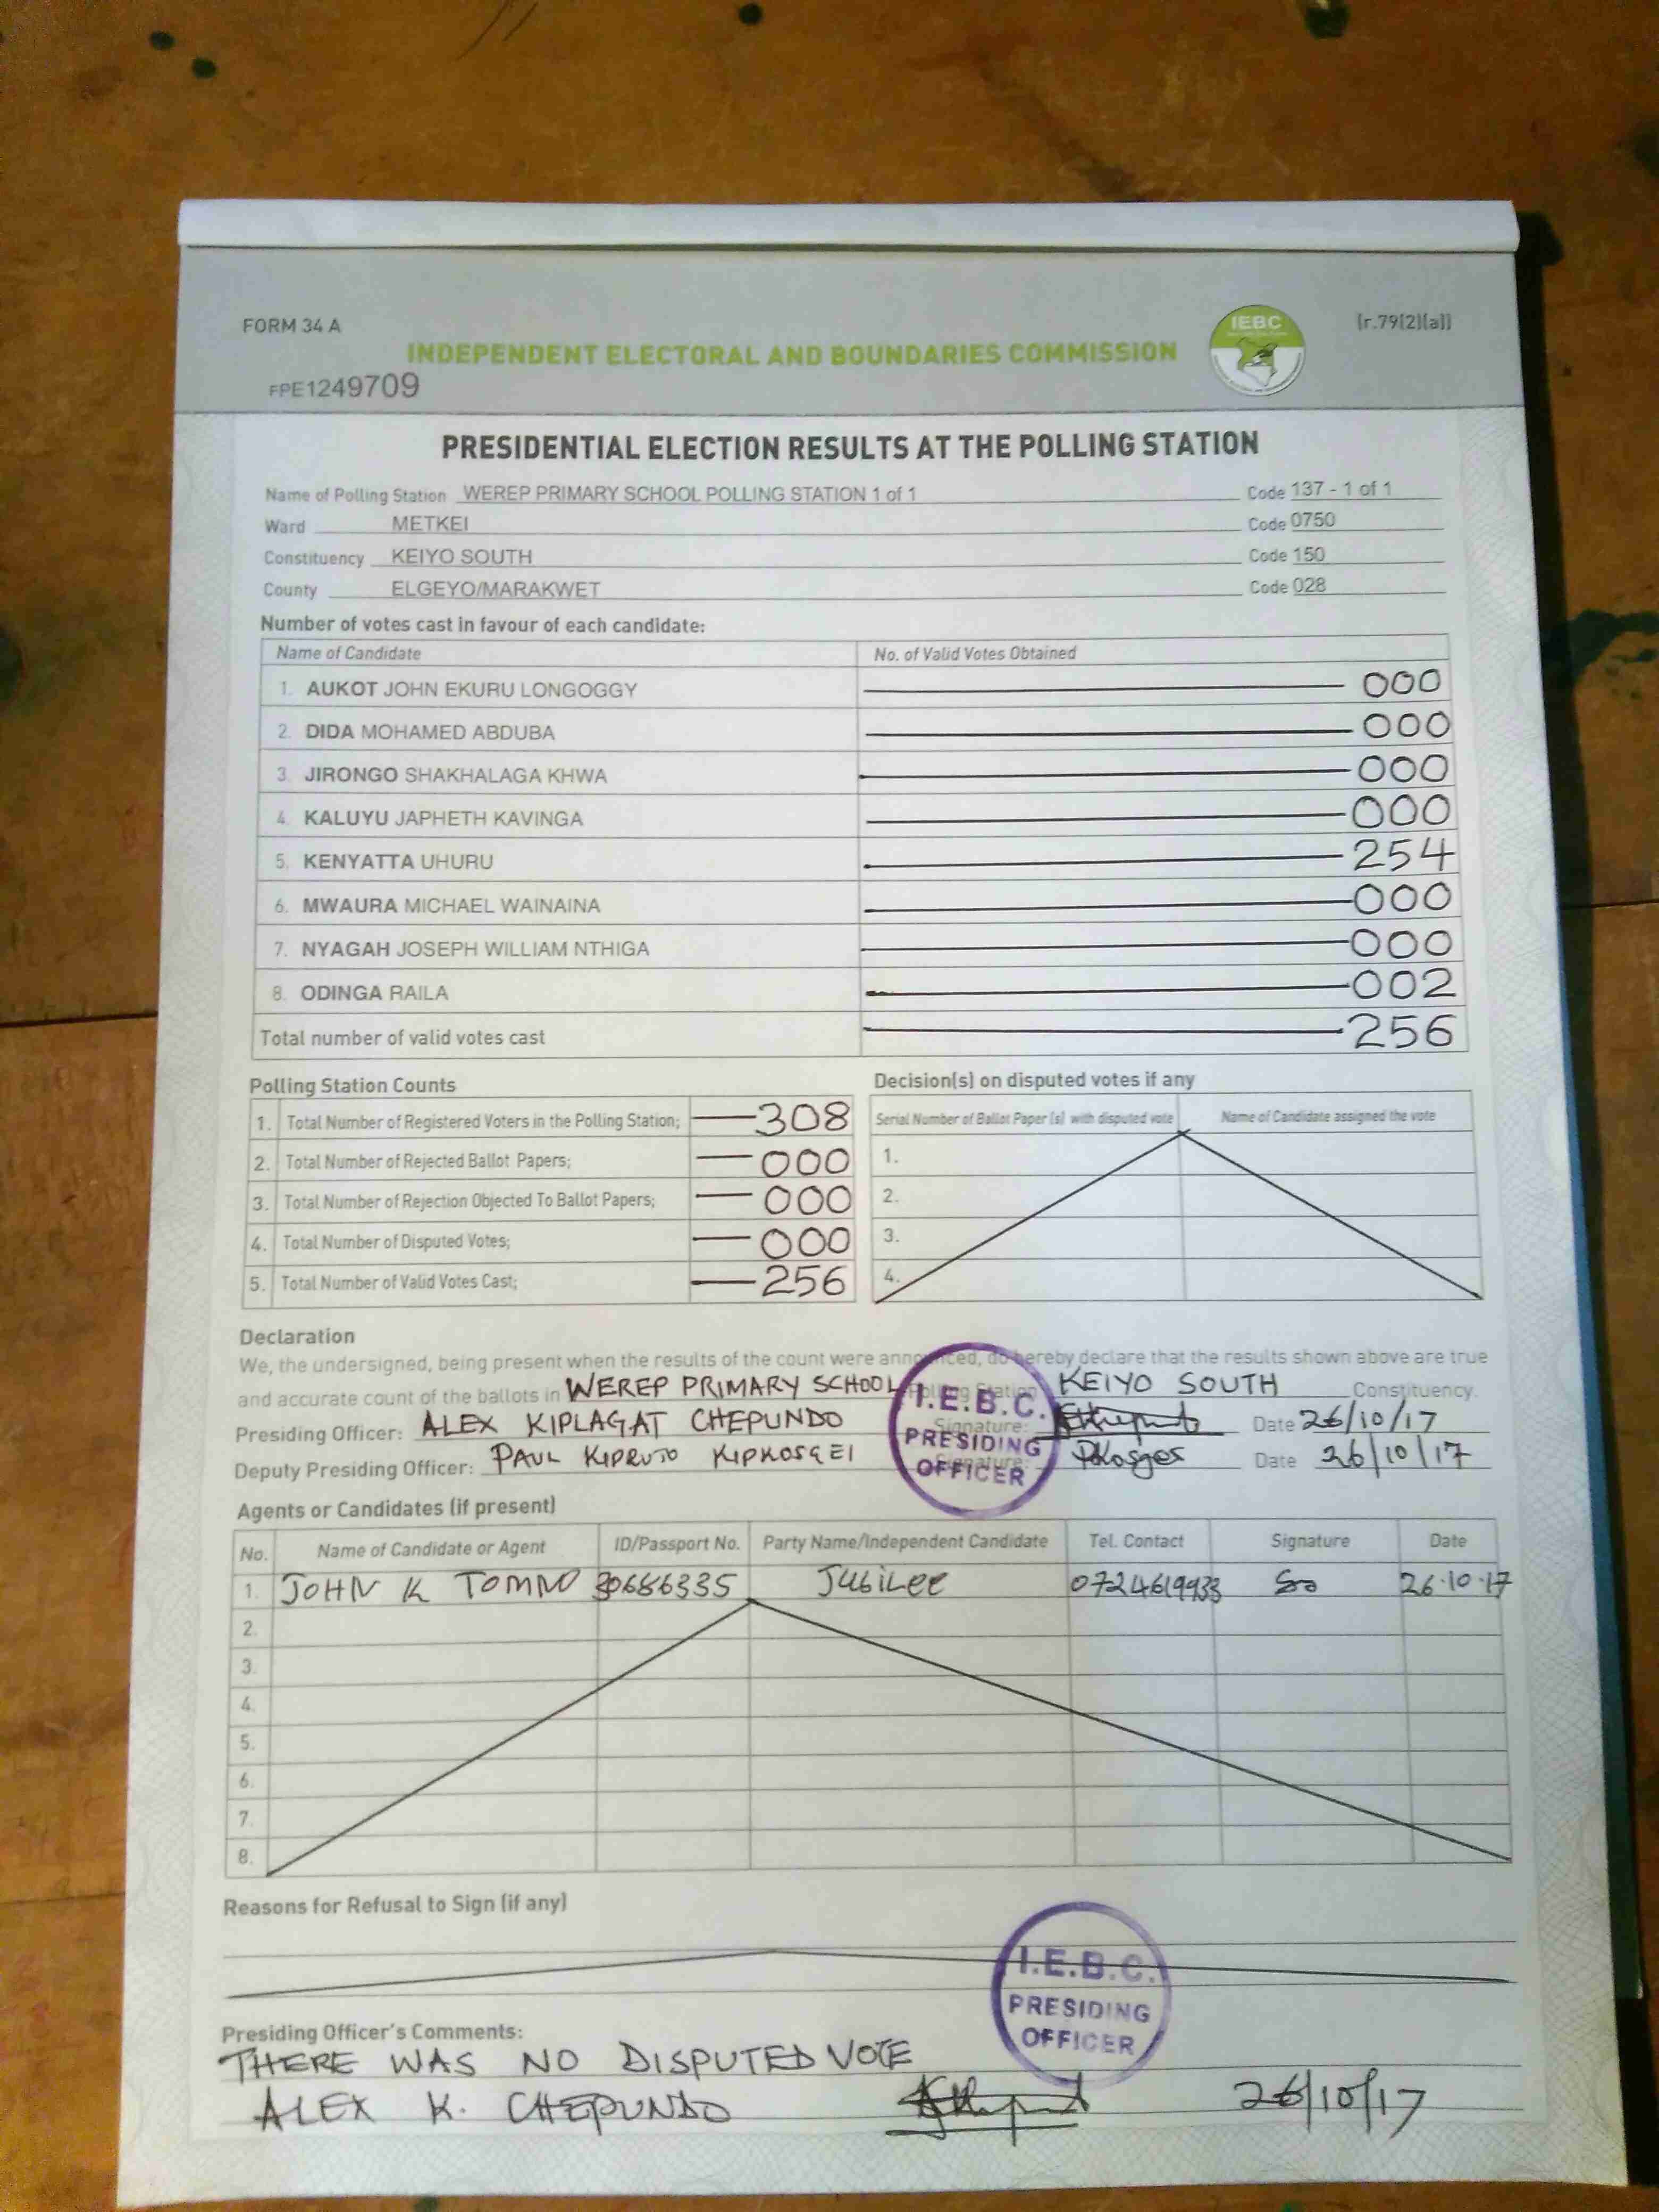 FORM 34 A
IEBC
[r.79(2)(a)]
INDEPENDENT ELECTORAL AND BOUNDARIES COMMISSION
FPE1249709
PRESIDENTIAL ELECTION RESULTS AT THE POLLING STATION
Name of Polling Station WEREP PRIMARY SCHOOL POLLING STATION 1 of 1 Code 137 - 1 of 1
Ward METKEI Code 0750
Constituency KEIYO SOUTH Code 150
County ELGEYO/MARAKWET Code 028
Number of votes cast in favour of each candidate:
Name of Candidate No. of Valid Votes Obtained
1. AUKOT JOHN EKURU LONGOGGY 000
2. DIDA MOHAMED ABDUBA 000
3. JIRONGO SHAKHALAGA KHWA 000
4. KALUYU JAPHETH KAVINGA 000
5. KENYATTA UHURU 254
6. MWAURA MICHAEL WAINAINA 000
7. NYAGAH JOSEPH WILLIAM NTHIGA 000
8. ODINGA RAILA 002
Total number of valid votes cast 256
Polling Station Counts
1. Total Number of Registered Voters in the Polling Station; 308
2. Total Number of Rejected Ballot Papers; 000
3. Total Number of Rejection Objected To Ballot Papers; 000
4. Total Number of Disputed Votes; 000
5. Total Number of Valid Votes Cast; 256
Decision(s) on disputed votes if any
Serial Number of Ballot Paper (s) with disputed vote Name of Candidate assigned the vote
1.
2.
3.
4.
Declaration
We, the undersigned, being present when the results of the count were announced, do hereby declare that the results shown above are true
and accurate count of the ballots in WEREP PRIMARY SCHOOL Polling Station KEIYO SOUTH Constituency.
Presiding Officer: ALEX KIPLAGAT CHEPUNDO Signature: Date 26/10/17
Deputy Presiding Officer: PAUL KIPRUTO KIPKOSGEI Signature: PKosgei Date 26/10/17
I.E.B.C.
PRESIDING
OFFICER
Agents or Candidates (if present)
No. Name of Candidate or Agent ID/Passport No. Party Name/Independent Candidate Tel. Contact Signature Date
1. JOHN K 30686335 JUBILEE 0724619933 26·10·17
2.
3.
4.
5.
6.
7.
8.
Reasons for Refusal to Sign (if any)
I.E.B.C.
PRESIDING
OFFICER
Presiding Officer's Comments:
THERE WAS NO DISPUTED VOTE
ALEX K. CHEPUNDO 26/10/17